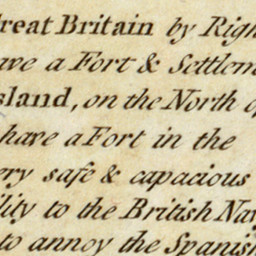 reat Britain by Righ
ave a Fort & Settlem
sland, on the North o
have a Fort in the
ery safe & capacious
ility to the British Nav
to annoy the Spanish